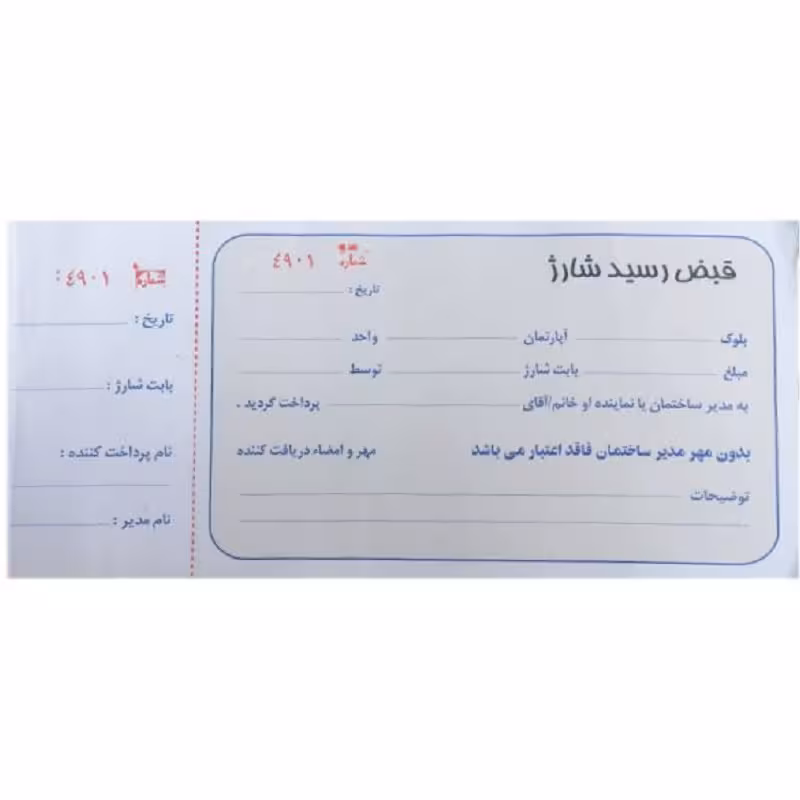 قبض رسید شارژ
شماره ٤٩٠١
تاریخ :
بلوک آپارتمان واحد
مبلغ بابت شارژ توسط
به مدیر ساختمان یا نماینده او خانم/آقای پرداخت گردید .
بدون مهر مدیر ساختمان فاقد اعتبار می باشد مهر و امضاء دریافت کننده
توضیحات
شماره ٤٩٠١ :
تاریخ :
بابت شارژ :
نام پرداخت کننده :
نام مدیر :